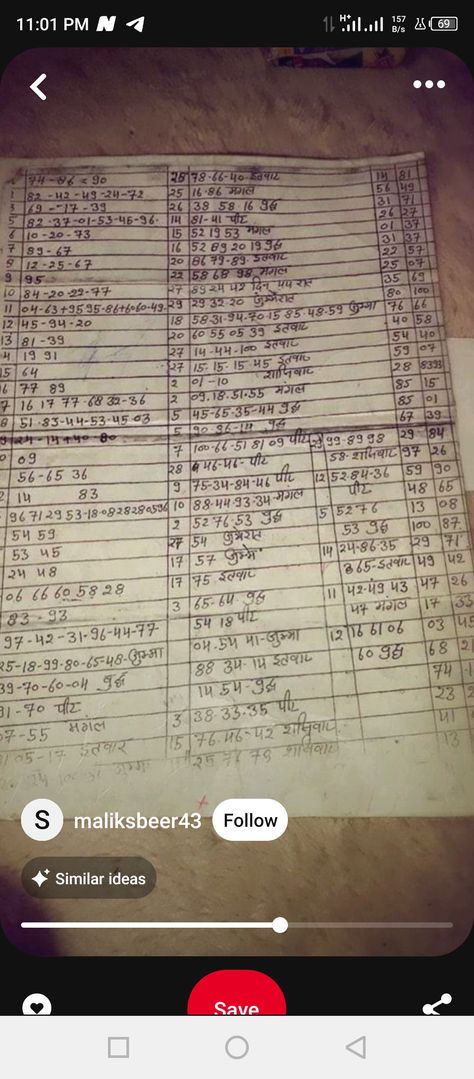 11:01 PM
H+
157 B/s
69
74-86=90 28 78.66-40 इतवाट 14 81
1 82-42-49-24-72 25 16.86 मंगल 56 49
3 69--17-39 26 38 58 16 बुद्ध 31 71
5 82.37-01-53-45-96. 14 81-41 पीट 26 27
6 10-20-73 15 52 19 53 मंगल 01 37
7 89-67 16 52 89 20 19 बुद्ध 31 37
12-25-67 20 86 79-89. इतवाट 22 57
9 95 22 58 68 98 मंगल 25 07
10 84-20-29-77 27 89 24 42 दिन 35 69
11 04-63+95 95-86+60 60-49 29 29 32-20 जुम्मेरात 80 100
12 45-94-20 18 58.31-94-70.15 85-48-59 जुम्मा 76 66
13 81-39 20 60 55 05 39 इतवाट 40 58
4 19 91 27 14-44-100 इतवाट 54 40
15 64 27 15.15.15 45 इतवाट 59 07
6 77 89 2 01-10 शनिवाट 28 8393
7 16 17 77-68 32-36 2 09.18.51.55 मंगल 85 15
8 51-83-44-53-45 03 5 45-65-35-44 बुद्ध 85 01
24-14+40-80 5 90 36-14 बुद्ध 67 39
09 7 100-66-51 81 09 पीट 29 99-89 98 29 84
56-65 36 28 46-46- पीट 58-शनिवाट 97 26
14 83 9 75-34-84-46 पीट 12 52-84-36 59 90
10 88-44-93-34-मंगल पीट 48 65
54 59 2 52 76-53 बुद्ध 5 52 76 13 08
53 45 27 54 जुम्मेरात 53 बुद्ध 100 87
24 48 17 57 जुम्मे 14 24-86-35 29 71
06 66 60 58 28 17 75 इतवाट 65-इतवाट 49 42
83-93 3 65-64 बुद्ध 11 42-49 43 47 26
97-42-31-96-44-77 54 18 पीट 47 मंगल 17 33
25-18-99-80-65-48-जुम्मा 04-54 41-जुम्मा 12 16 61 06 03 45
39-70-60-04 बुद्ध 88 34-14 इतवाट 60 बुद्ध 68
31-70 पीट 14 54-बुद्ध 74
07-55 मंगल 3 38-33-35 पीट 23
05-17 इतवार 15 76.46-42 शनिवाट 41
25 76 78 शनिवाट 13
S maliksbeer43 Follow
Similar ideas
Save